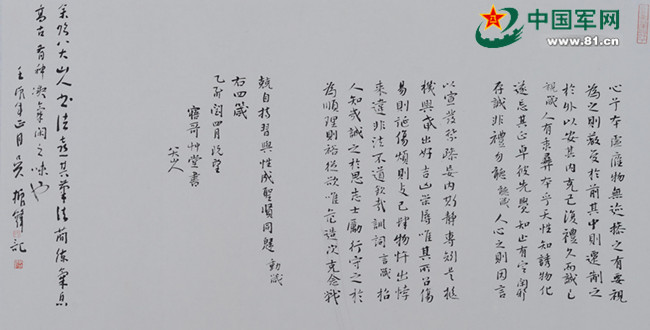 中国军网
www.81.cn
心乎本虛應物無迹操之有要視
為之則蔽交於前其中則遷制之
於外以安其內克己復禮久而誠已
視箴 人有秉彝本乎天性知誘物化
遂忘其正卓彼先覺知止有定閑邪
存誠非禮勿聽 聽箴 人心之 因言
以宣發禁躁妄內則靜專矧是樞
機興戎出好吉凶榮辱唯其所召傷
易則誕傷煩則支己肆物忤出悖
來違非法不道欽哉訓詞 言箴
人知幾誠之於思志士勵行守之於
為順理則裕從欲唯危造次克念戰
兢自持習與性成聖賢同 動箴
右四箴
乙酉閏四月既望
寤哥艸堂書
八大山人
八大山人書法喜其筆法簡練氣息
高古有神 之味也
壬辰年正月吳 記